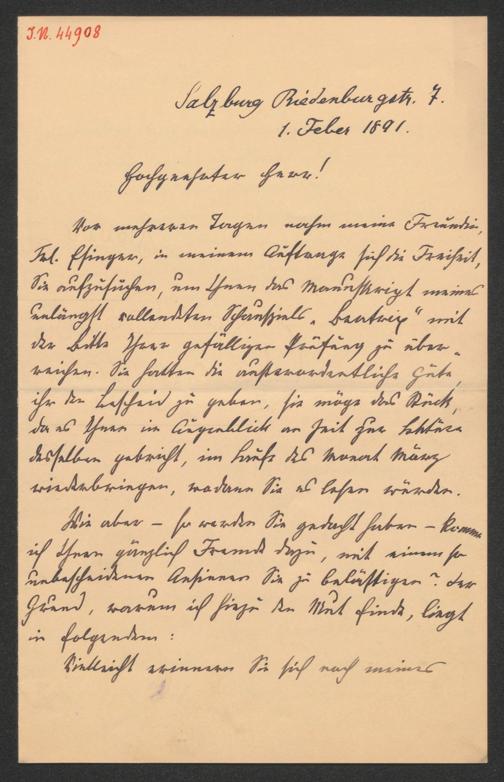 J.N. 44908
Salzburg Riedenburgstr. 7.
1. Feber 1891.
Hochgeehrter Herr!
Vor mehreren Tagen nahm meine Freundin,
Frl. Esinger, in meinem Auftrage sich die Freiheit,
Sie aufzusuchen, um Ihnen das Manuskript meines
unlängst vollendeten Schauspiels „Beatrix" mit
der Bitte Ihrer gefälligen Prüfung zu über-
reichen. Sie hatten die außerordentliche Güte,
ihr den Bescheid zu geben, sie möge das Stück,
da es Ihnen im Augenblick an Zeit zur Lektüre
desselben gebricht, im Laufe des Monat März
wiederbringen, wodann Sie es lesen würden.
Wie aber – so werden Sie gedacht haben – komme
ich Ihnen gänzlich Fremde dazu, mit einem so
unbescheidenen Ansinnen Sie zu belästigen? Der
Grund, warum ich hiezu den Mut finde, liegt
in folgendem:
Vielleicht erinnern Sie sich noch meines